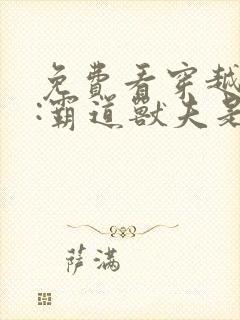 免費看穿越
:霸道獸夫是
萨满